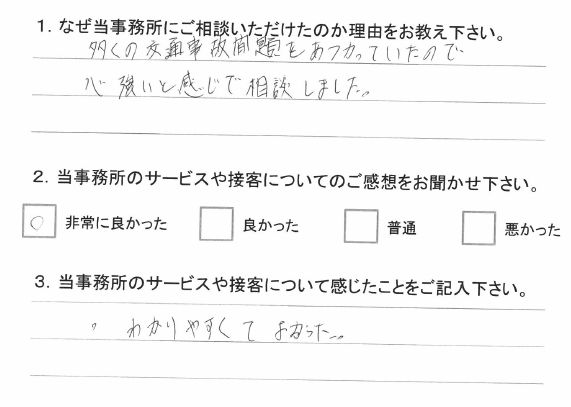 1. なぜ当事務所にご相談いただけたのか理由をお教え下さい。
多くの交通事故問題をあつかっていたので
心強いと感じて相談しました。
2. 当事務所のサービスや接客についてのご感想をお聞かせ下さい。
○ 非常に良かった 良かった 普通 悪かった
3. 当事務所のサービスや接客について感じたことをご記入下さい。
。わかりやすくてよかった。